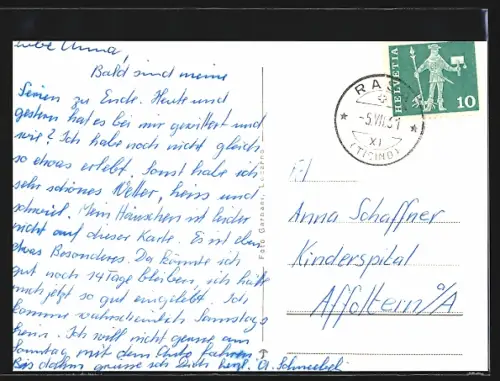 Liebe Anna!
Bald sind meine
Ferien zu Ende. Heute und
gestern hat es bei mir gewittert und
wie? Ich habe noch nicht gleich
so etwas erlebt. Sonst habe ich
sehr schönes Wetter, heiss und
schwül. Mein Häuschen ist leider
nicht auf dieser Karte. Es ist eben
etwas Besonderes. Da könnte ich
gut noch 14 Tage bleiben, ich hätte
mich jetzt so gut eingelebt. Ich
komme wahrscheinlich Samstags
heim. Ich will nicht gerne am
Sonntag mit dem Auto fahren.
Bis dahin grüsse ich Dich herzl. A. Schnebeli
Foto Garbani, Locarno
HELVETIA
10
RAS
-5.VII.
XI
(TICINO)
Frl.
Anna Schaffner
Kinderspital
Affoltern a/A